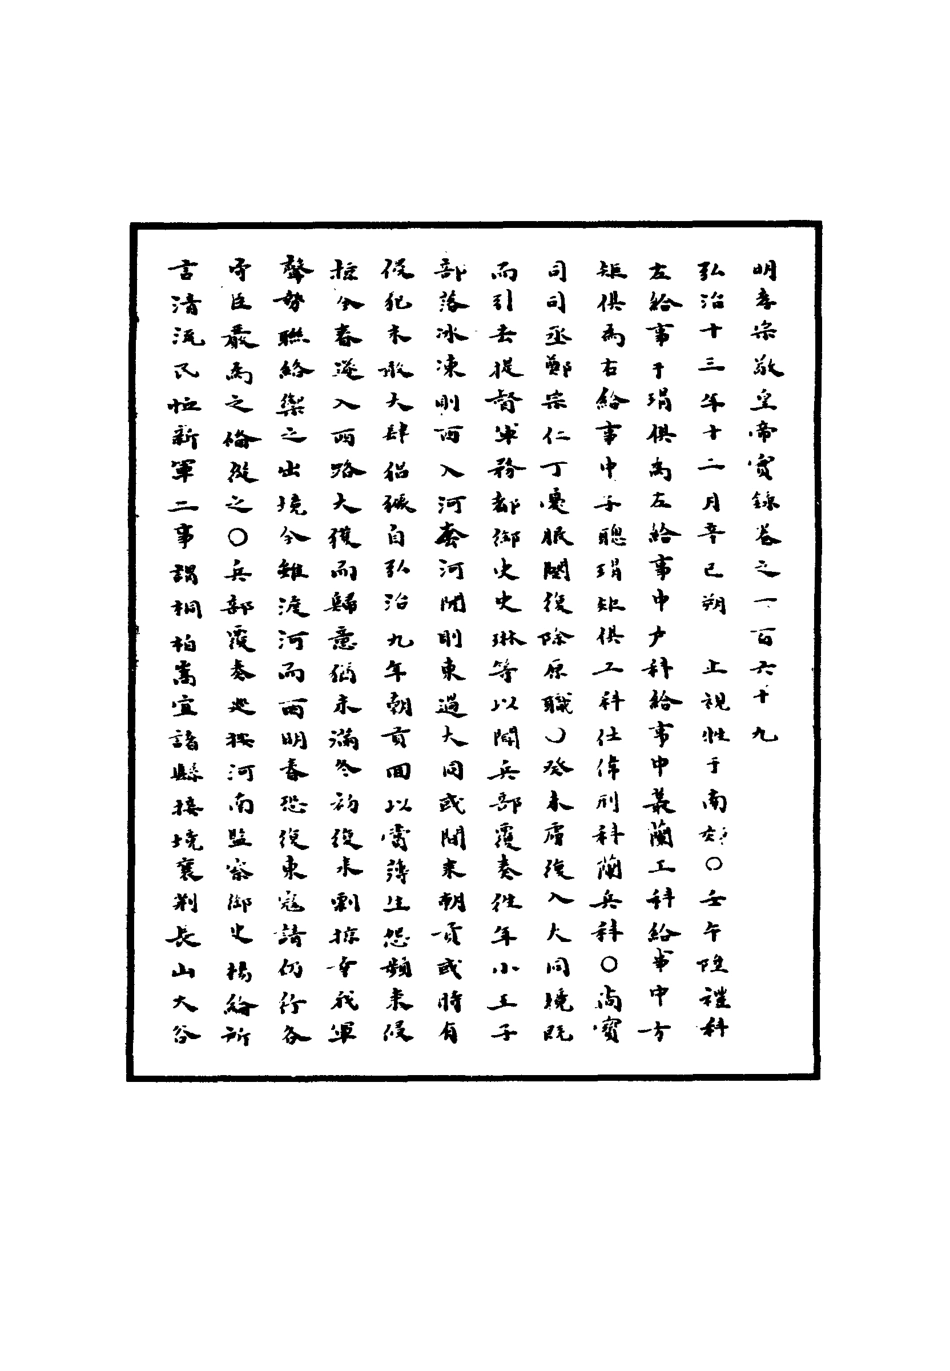 明孝宗敬皇帝實錄卷之一百六十九
弘治十三年十二月辛巳朔　上視牲于南郊〇壬午陞禮科
左給事于瑁俱為左給事中戶科給事中叢蘭工科給事中方
矩俱為右給事中于聰瑁矩俱工科仕偉刑科蘭兵科〇尚寶
司司丞鄭宗仁丁憂服闋復除原職〇癸未虜復入大同境既
而引去提督軍務都御史史琳等以聞兵部覆奏往年小王子
部落冰凍則西入河套河開則東過大同或間來朝貢或時有
侵犯未敢大肆猖獗自弘治九年朝貢回以賞薄生怨頻來侵
掠今春遂入西路大獲而歸意猶未滿冬初復來剽掠幸我軍
聲勢聯絡禦之出境今雖渡河而西明春恐復東寇請仍行各
守臣嚴為之備從之〇兵部覆奏巡按河南監察御史楊綸所
言清流民恤新軍二事謂桐柏嵩宜諸縣接境襄荊長山大谷